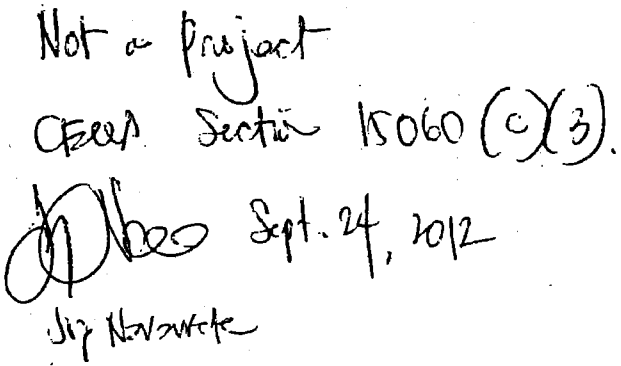 Not a Project
CEQA Section 15060 (c)(3).
Sept. 24, 2012
Navarrete